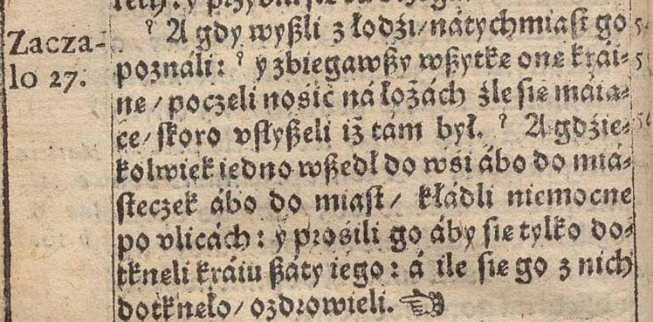 ² A gdy wyßli z łodźi/nátychmiast go
Zacza-
lo 27.
poználi: ² y zbiegawßy wßytke one krái-
ne/poczeli nosić ná łożách źle sie máią-
ce/skoro vsłyßeli iż tám był. ² A gdźie-
kolwiek iedno wßedł do wśi ábo do miá-
steczek ábo do miast/ kłádli niemocne
po vlicách: y prosili go áby sie tylko do-
tkneli kráiu ßáty iego: á ile sie go z nich
dotkneło/ozdrowieli. ☜